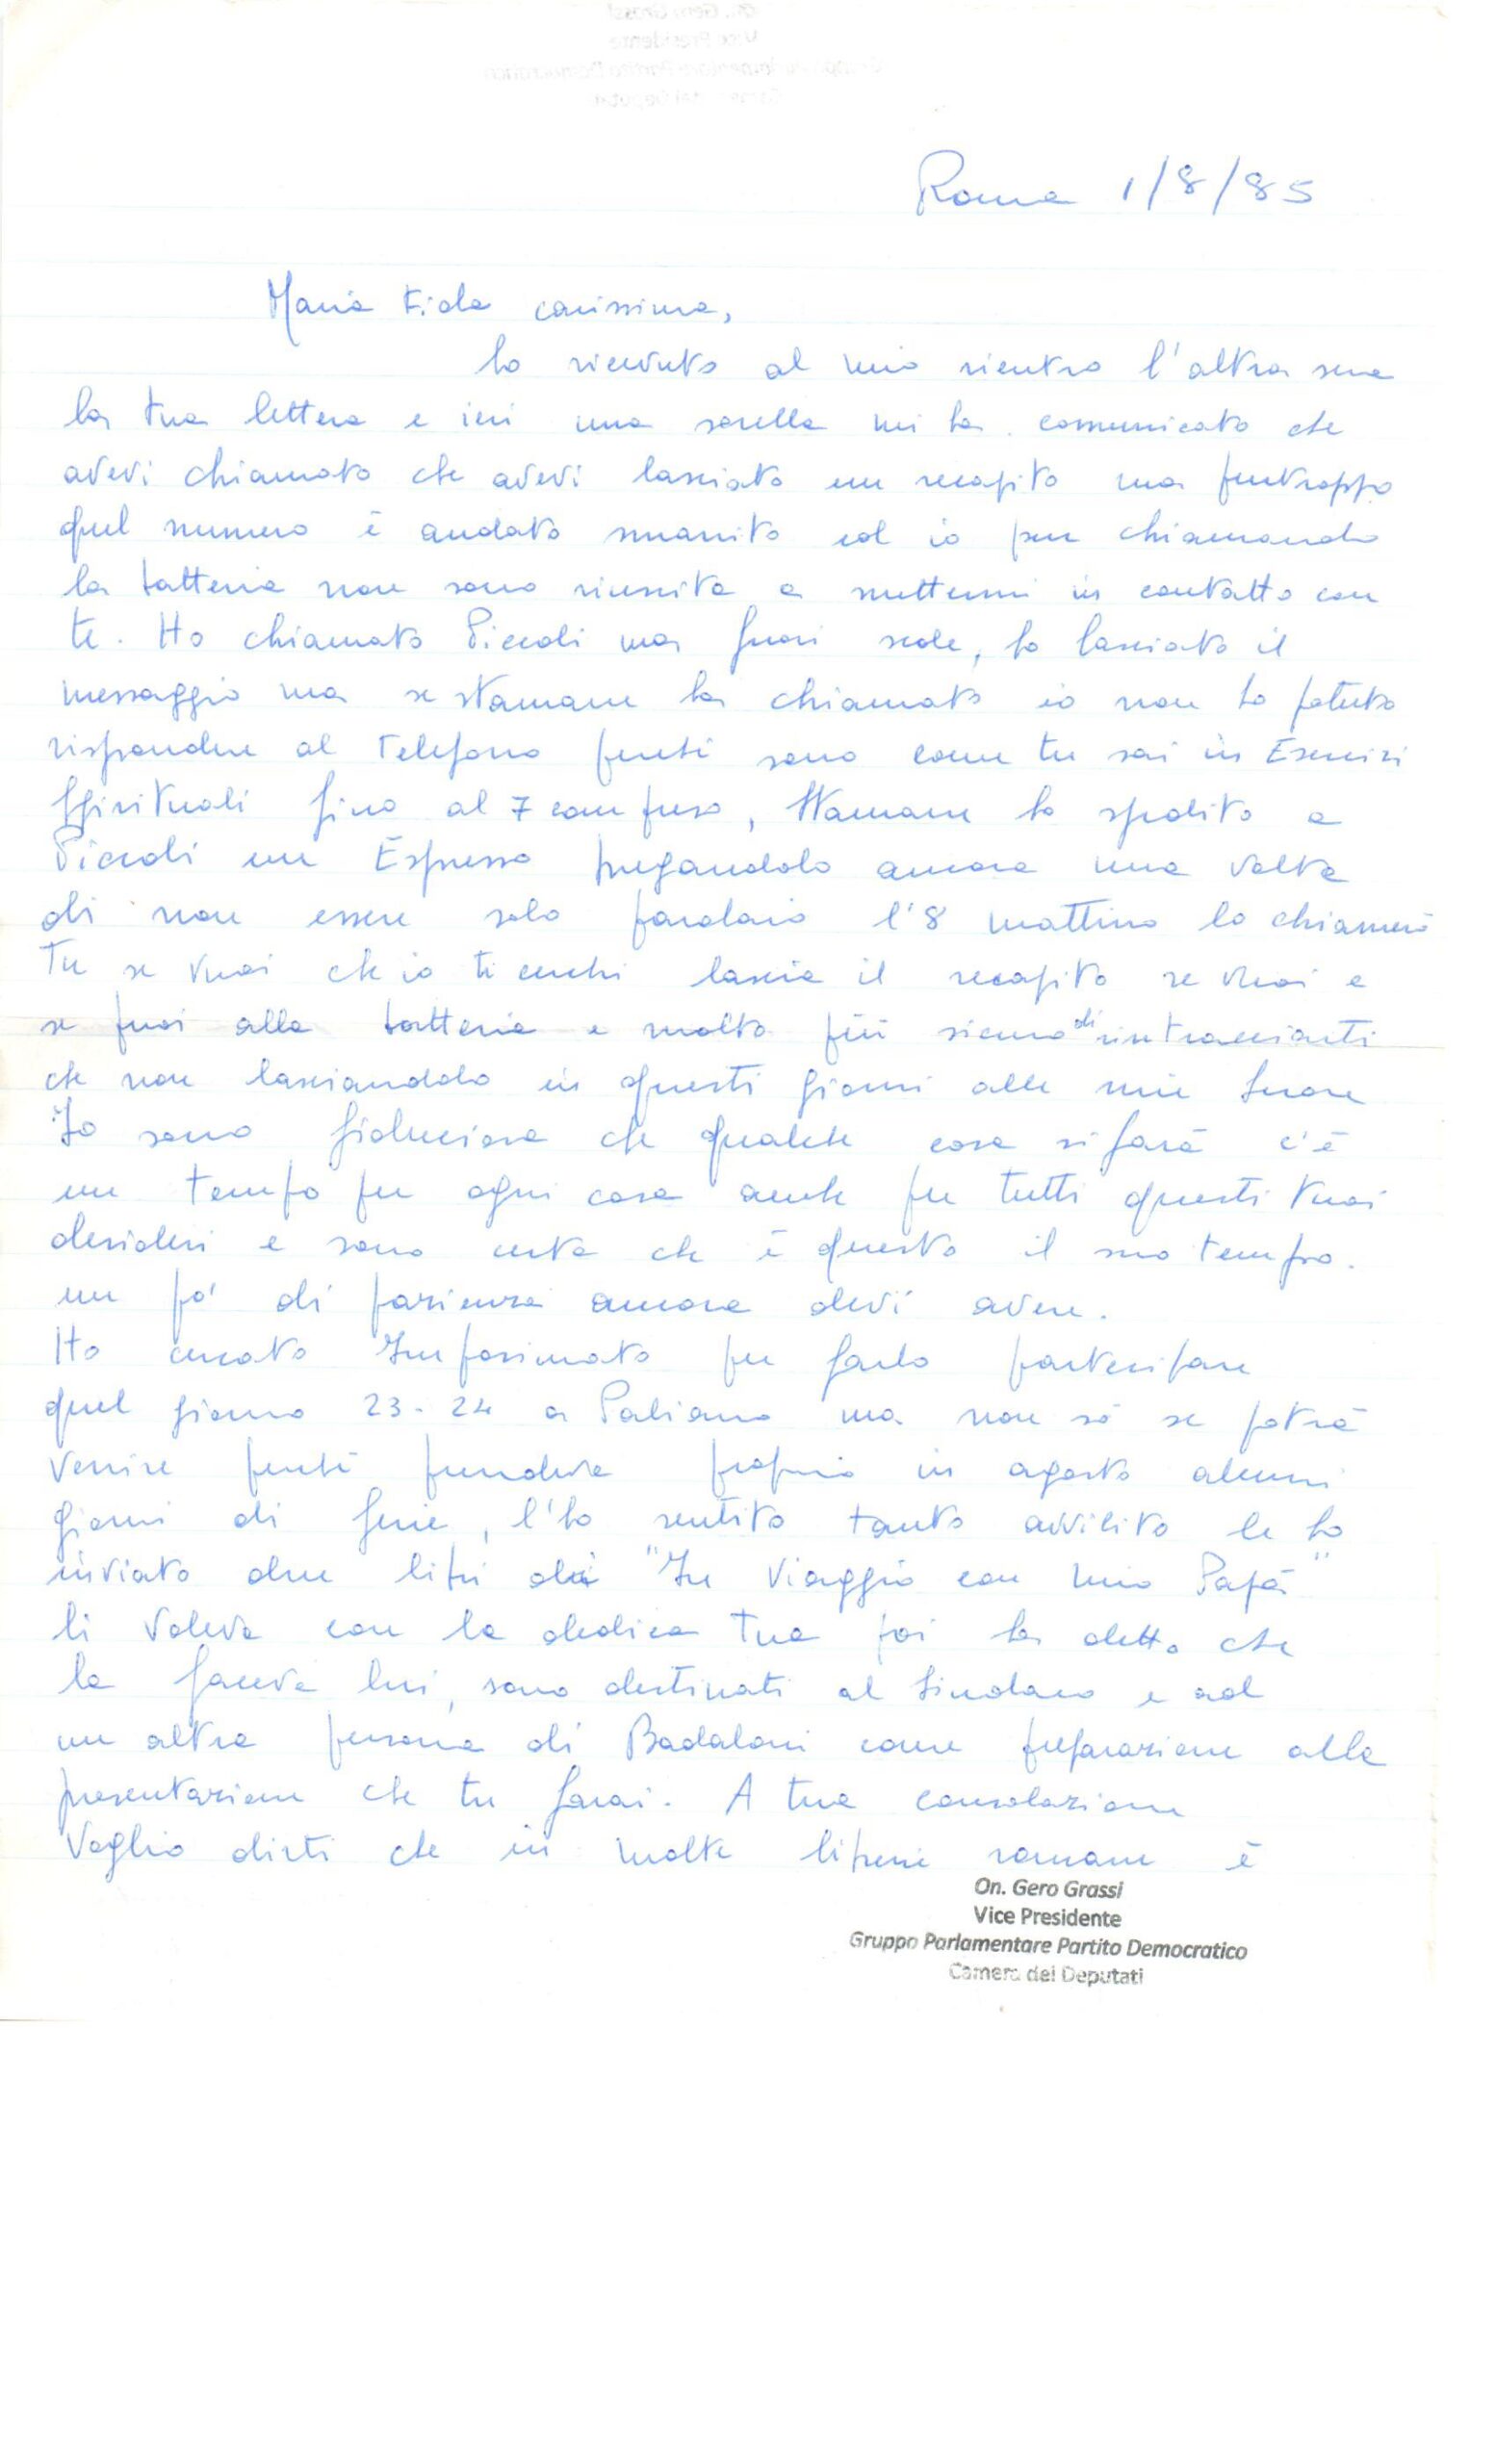 Roma 1/8/85
Maria Fida carissima,
ho ricevuto al mio rientro l'altra sera
la tua lettera e ieri una sorella mi ha comunicato che
avevi chiamato che avevi lasciato un recapito ma purtroppo
quel numero è andato smarrito ed io pur chiamando
la batteria non sono riuscita a mettermi in contatto con
te. Ho chiamato Piccoli ma fuori sede, ho lasciato il
messaggio ma se stamane ha chiamato io non ho potuto
rispondere al telefono perché sono come tu sai in Esercizi
Spirituali fino al 7 compreso, Stamane ho spedito a
Piccoli un Espresso pregandolo ancora una volta
di non essere solo parolaio l'8 mattino lo chiamerò
Tu se vuoi che io ti cerchi lascia il recapito se vuoi e
se puoi alla batteria e molto più sicuro di rintracciarti
che non lasciandolo in questi giorni alle mie Suore
Io sono fiduciosa che qualche cosa si farà c'è
un tempo per ogni cosa anche per tutti questi tuoi
desideri e sono certa che è questo il suo tempo.
un po' di pazienza ancora devi avere.
Ho cercato Imposimato per farlo partecipare
quel giorno 23-24 a Paliano ma non sò se potrà
venire perché prendeva proprio in agosto alcuni
giorni di ferie, l'ho sentito tanto avvilito le ho
inviato due libri di "In Viaggio con mio Papà"
li voleva con la dedica tua poi ha detto che
la faceva lui, sono destinati al Sindaco e ad
un altra persona di Badaloni come preparazione alla
presentazione che tu farai. A tua consolazione
Voglio dirti che in molte librerie romane è
On. Gero Grassi
Vice Presidente
Gruppo Parlamentare Partito Democratico
Camera dei Deputati